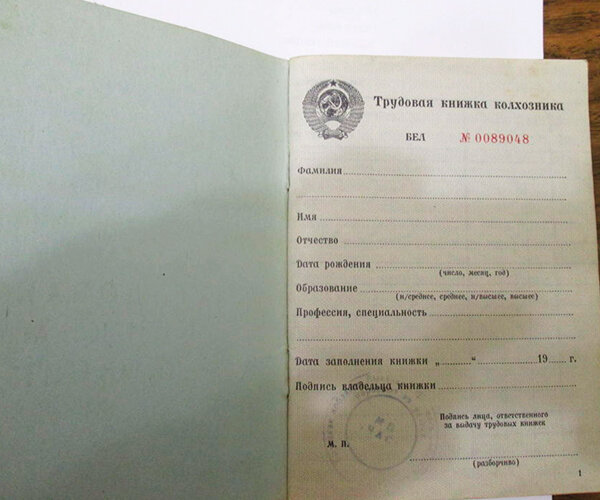 Трудовая книжка колхозника
БЕЛ № 0089048
Фамилия
Имя
Отчество
Дата рождения
(число, месяц, год)
Образование
(н/среднее, среднее, н/высшее, высшее)
Профессия, специальность
Дата заполнения книжки „ “ 19 г.
Подпись владельца книжки
Подпись лица, ответственного
за выдачу трудовых книжек
М. П.
(разборчиво)
1